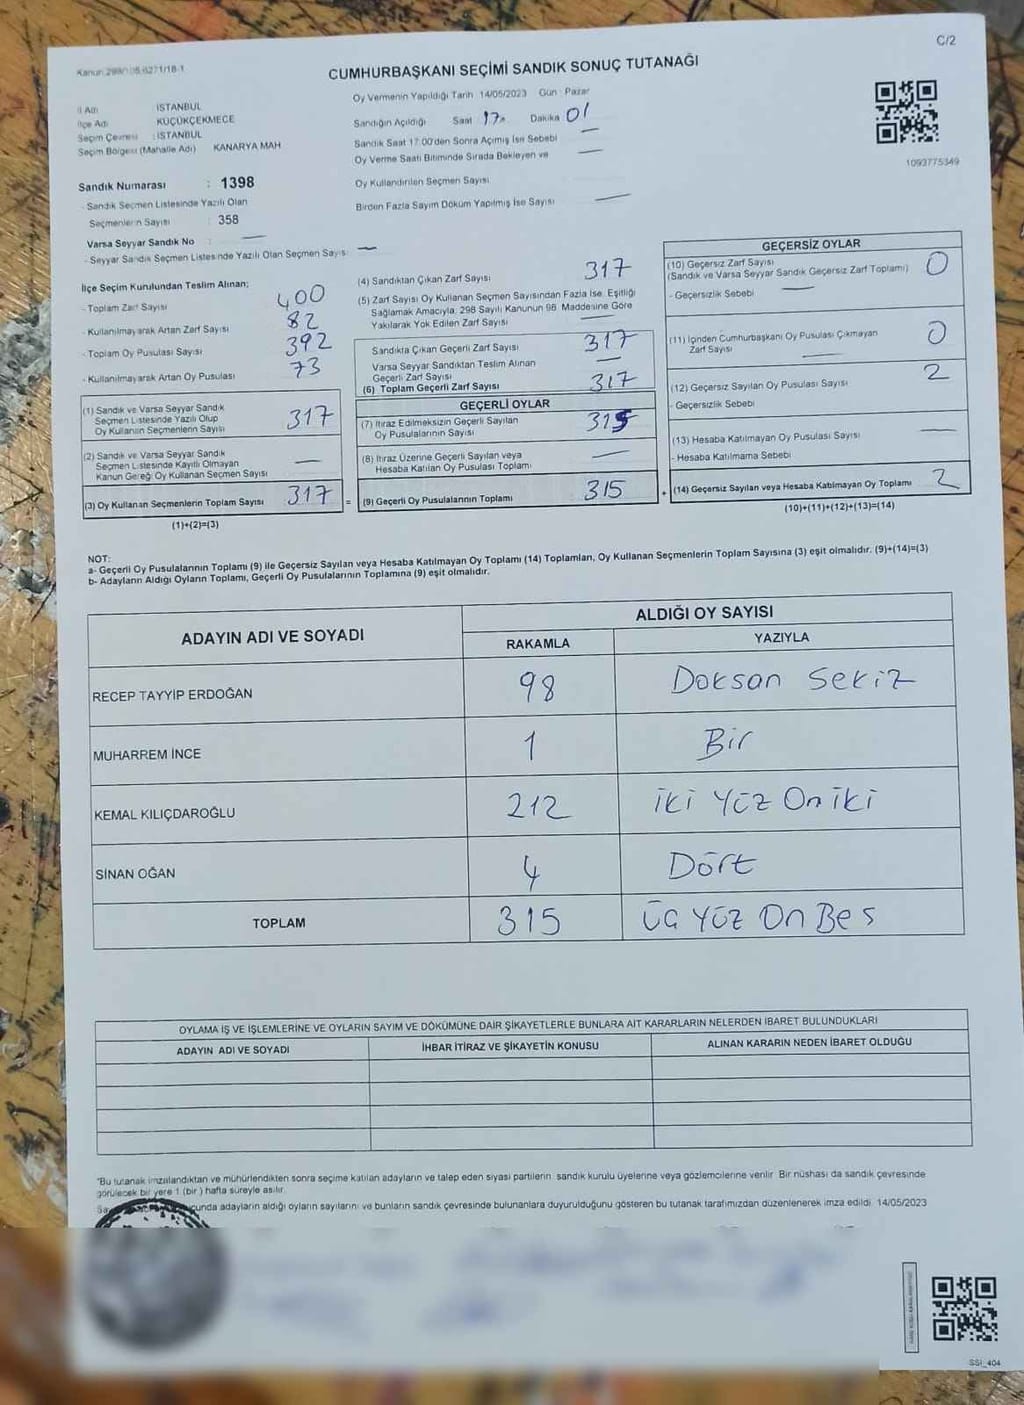 C/2
Kanun:298/105,6271/18-1
CUMHURBAŞKANI SEÇİMİ SANDIK SONUÇ TUTANAĞI
İl Adı : İSTANBUL
İlçe Adı : KÜÇÜKÇEKMECE
Seçim Çevresi : İSTANBUL
Seçim Bölgesi (Mahalle Adı) KANARYA MAH
Oy Vermenin Yapıldığı Tarih 14/05/2023 Gün : Pazar
Sandığın Açıldığı Saat 17 Dakika 01
Sandık Saat 17:00'den Sonra Açımış İse Sebebi —
Oy Verme Saati Bitiminde Sırada Bekleyen ve —
Oy Kullandırılan Seçmen Sayısı
Birden Fazla Sayım Döküm Yapılmış İse Sayısı —
1093775349
Sandık Numarası : 1398
- Sandık Seçmen Listesinde Yazılı Olan
Seçmenlerin Sayısı : 358
Varsa Seyyar Sandık No : —
- Seyyar Sandık Seçmen Listesinde Yazılı Olan Seçmen Sayısı —
İlçe Seçim Kurulundan Teslim Alınan;
- Toplam Zarf Sayısı 400
- Kullanılmayarak Artan Zarf Sayısı 82
- Toplam Oy Pusulası Sayısı 392
- Kullanılmayarak Artan Oy Pusulası 73
(1) Sandık ve Varsa Seyyar Sandık
Seçmen Listesinde Yazılı Olup
Oy Kullanan Seçmenlerin Sayısı 317
(2) Sandık ve Varsa Seyyar Sandık
Seçmen Listesinde Kayıtlı Olmayan
Kanun Gereği Oy Kullanan Seçmen Sayısı —
(3) Oy Kullanan Seçmenlerin Toplam Sayısı 317 =
(1)+(2)=(3)
(4) Sandıktan Çıkan Zarf Sayısı 317
(5) Zarf Sayısı Oy Kullanan Seçmen Sayısından Fazla İse, Eşitliği
Sağlamak Amacıyla, 298 Sayılı Kanunun 98. Maddesine Göre
Yakılarak Yok Edilen Zarf Sayısı —
Sandıkta Çıkan Geçerli Zarf Sayısı 317
Varsa Seyyar Sandıktan Teslim Alınan
Geçerli Zarf Sayısı —
(6) Toplam Geçerli Zarf Sayısı 317
GEÇERLİ OYLAR
(7) İtiraz Edilmeksizin Geçerli Sayılan
Oy Pusulalarının Sayısı 315
(8) İtiraz Üzerine Geçerli Sayılan veya
Hesaba Katılan Oy Pusulası Toplamı —
(9) Geçerli Oy Pusulalarının Toplamı 315 +
GEÇERSİZ OYLAR
(10) Geçersiz Zarf Sayısı
(Sandık ve Varsa Seyyar Sandık Geçersiz Zarf Toplamı) 0
- Geçersizlik Sebebi —
(11) İçinden Cumhurbaşkanı Oy Pusulası Çıkmayan
Zarf Sayısı — 0
(12) Geçersiz Sayılan Oy Pusulası Sayısı 2
- Geçersizlik Sebebi
(13) Hesaba Katılmayan Oy Pusulası Sayısı —
- Hesaba Katılmama Sebebi
(14) Geçersiz Sayılan veya Hesaba Katılmayan Oy Toplamı 2
(10)+(11)+(12)+(13)=(14)
NOT:
a- Geçerli Oy Pusulalarının Toplamı (9) ile Geçersiz Sayılan veya Hesaba Katılmayan Oy Toplamı (14) Toplamları, Oy Kullanan Seçmenlerin Toplam Sayısına (3) eşit olmalıdır. (9)+(14)=(3)
b- Adayların Aldığı Oyların Toplamı, Geçerli Oy Pusulalarının Toplamına (9) eşit olmalıdır.
ADAYIN ADI VE SOYADI ALDIĞI OY SAYISI
RAKAMLA YAZIYLA
RECEP TAYYİP ERDOĞAN 98 Doksan Sekiz
MUHARREM İNCE 1 Bir
KEMAL KILIÇDAROĞLU 212 İki Yüz On iki
SİNAN OĞAN 4 Dört
TOPLAM 315 ÜÇ YÜZ On Beş
OYLAMA İŞ VE İŞLEMLERİNE VE OYLARIN SAYIM VE DÖKÜMÜNE DAİR ŞİKAYETLERLE BUNLARA AİT KARARLARIN NELERDEN İBARET BULUNDUKLARI
ADAYIN ADI VE SOYADI İHBAR İTİRAZ VE ŞİKAYETİN KONUSU ALINAN KARARIN NEDEN İBARET OLDUĞU
*Bu tutanak imzalandıktan ve mühürlendikten sonra seçime katılan adayların ve talep eden siyasi partilerin sandık kurulu üyelerine veya gözlemcilerine verilir. Bir nüshası da sandık çevresinde
görülecek bir yere 1 (bir) hafta süreyle asılır.
adayların aldığı oyların sayılarını ve bunların sandık çevresinde bulunanlara duyurulduğunu gösteren bu tutanak tarafımızdan düzenlenerek imza edildi. 14/05/2023
SSI_404